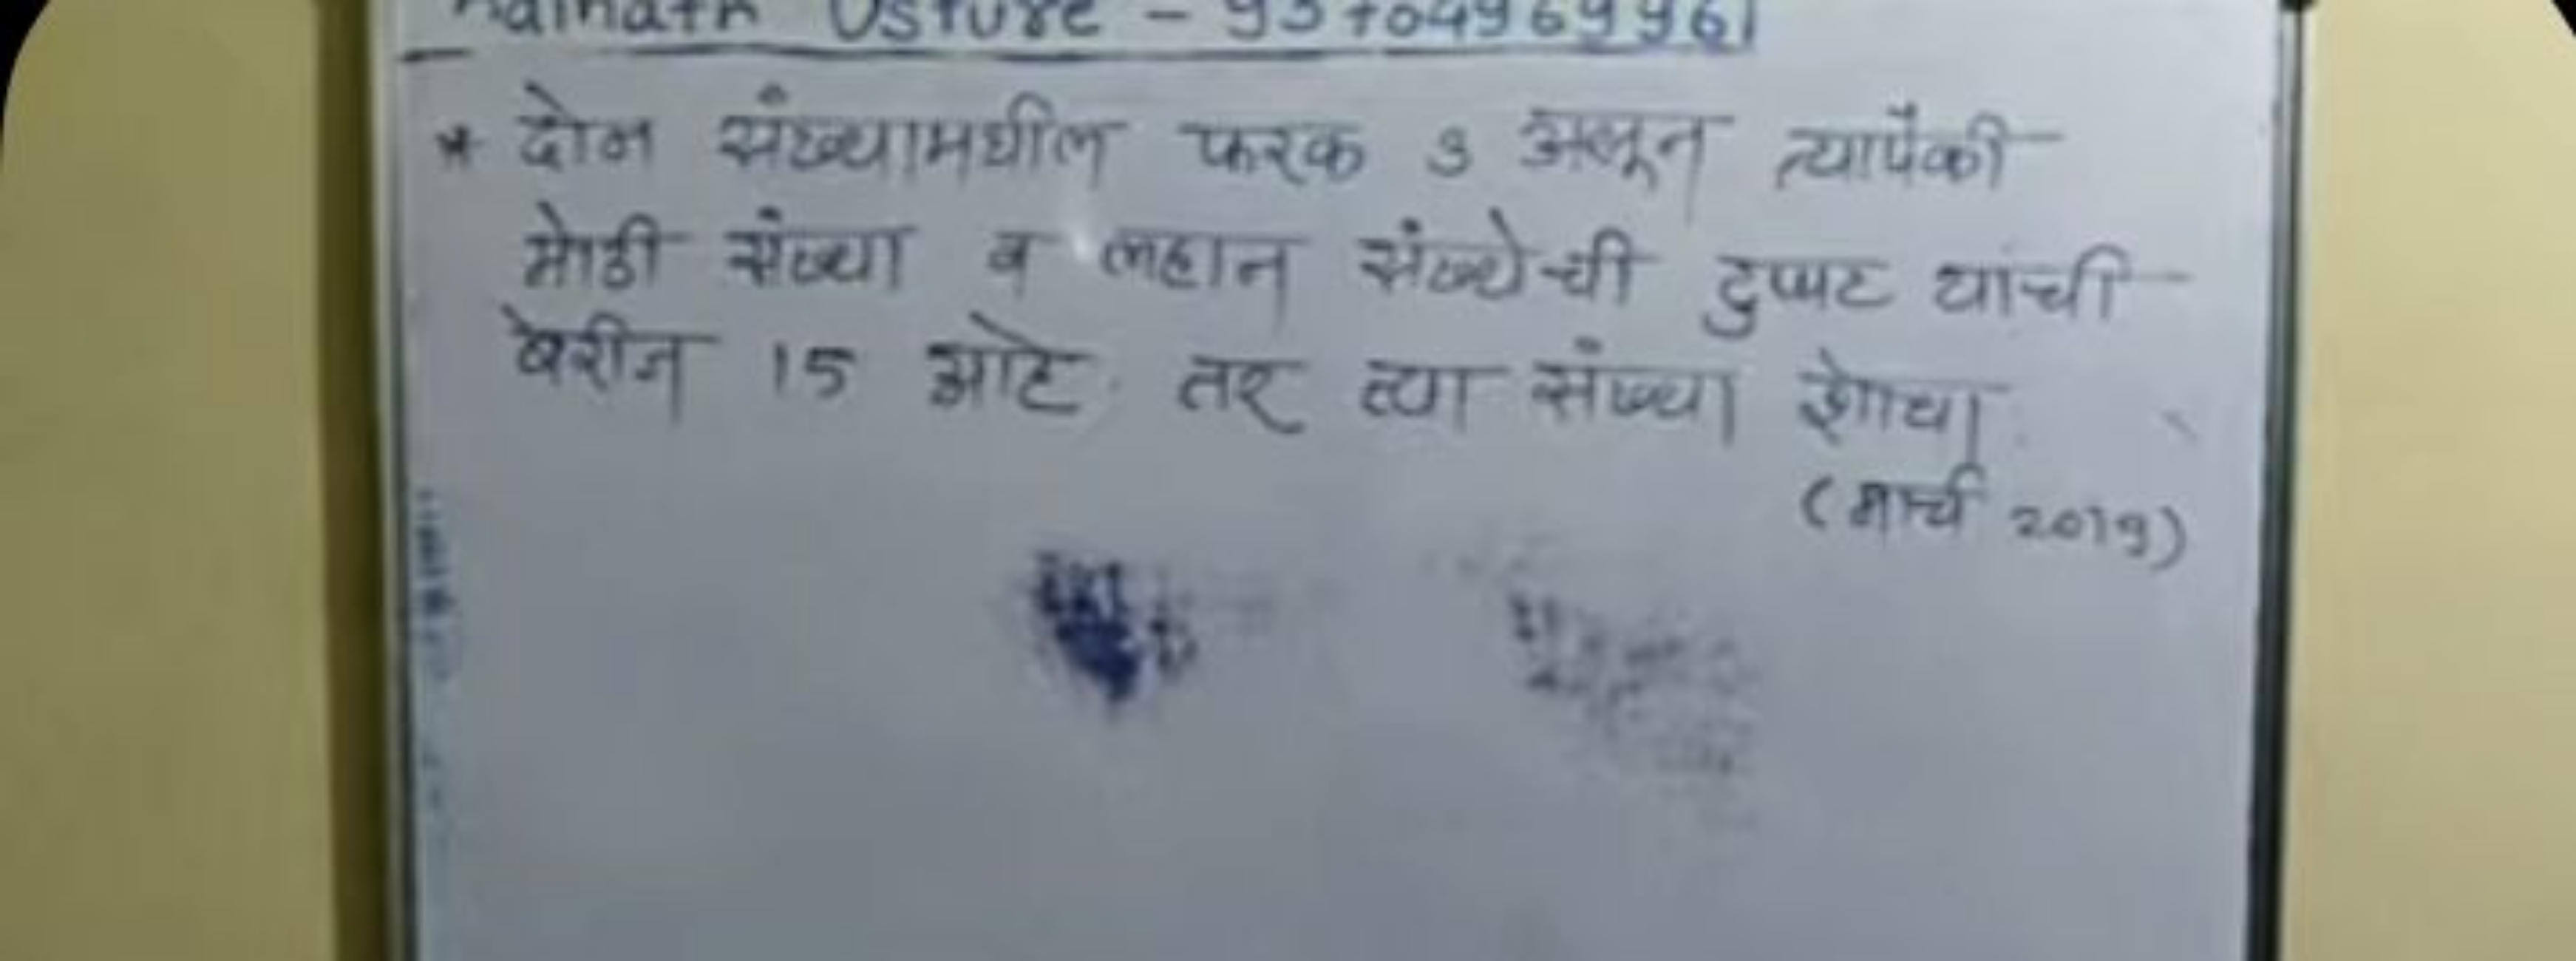 Usture - 9370496996१
* दोन संख्यामधील फरक 3 असून त्यापैकी
मोठी संख्या व लहान संख्येची दुप्पट यांची
बेरीज 15 आहे. तर त्या संख्या शोधा.
(मार्च 2019)